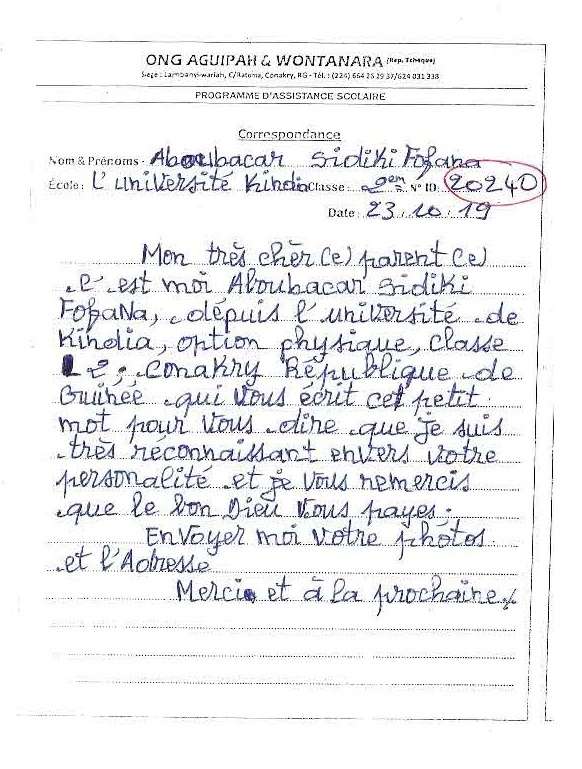 ONG AGUIPAH & WONTANARA (Rep. Tchèque)
Siège : Lambanyi-wariah, C/Ratoma, Conakry, RG - Tél. : (224) 664 26 29 37/624 031 338
PROGRAMME D'ASSISTANCE SCOLAIRE
Correspondance
Nom & Prénoms : Aboubacar Sidiki Fofana
École : L'université Kindia Classe : 2em N° ID : 20240
Date : 23.10.19
Mon très chèr(e) parent(e)
c'est moi Aboubacar Sidiki
FofaNa, dépuis l'université de
Kindia, option physique, classe
L2, Conakry République de
Guinée qui vous écrit cet petit
mot pour vous dire que je suis
très réconnaissant envers votre
personalité et je vous remercis
que le bon Dieu vous payes.
Envoyer moi votre photos
et l'Adresse
Merci et à la prochaine./.